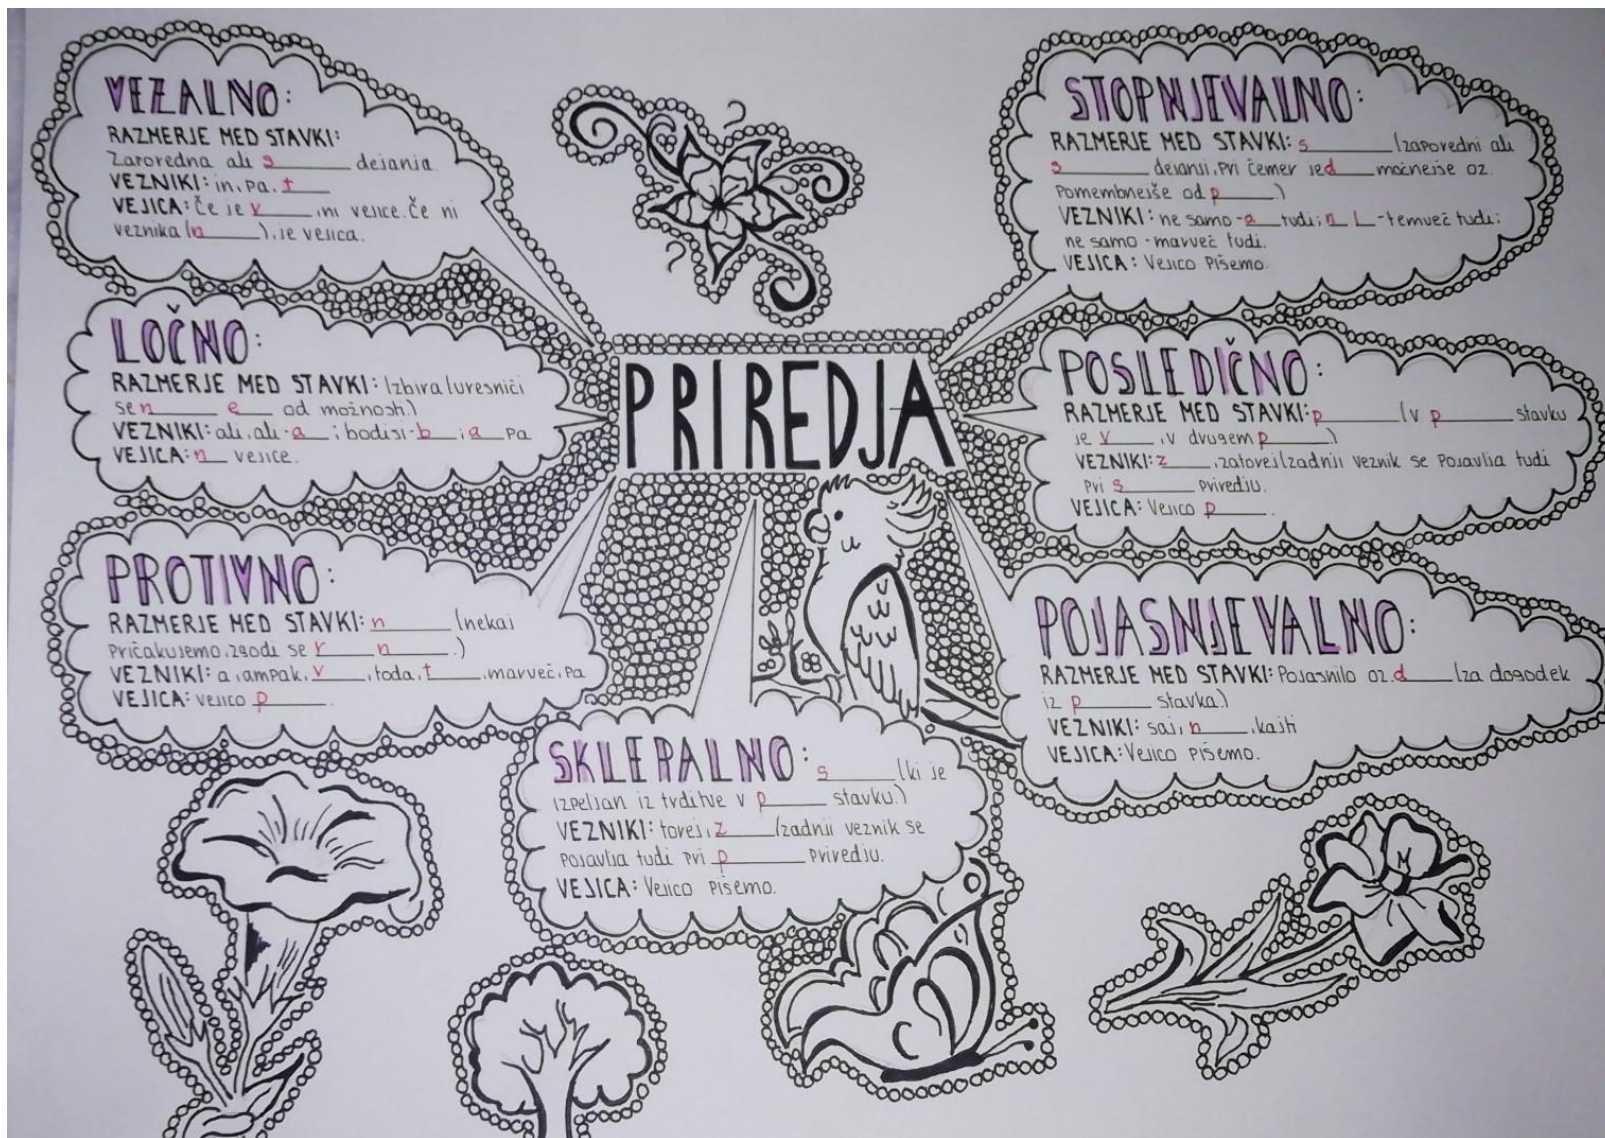 VEZALNO:
RAZMERJE MED STAVKI:
Zaporedna ali s______ dejanja.
VEZNIKI: in, pa, t____
VEJICA: Če je v_____, ni vejice. Če ni
veznika (n______), je vejica.
LOČNO:
RAZMERJE MED STAVKI: Izbira (uresniči
se n______ e____ od možnosti.)
VEZNIKI: ali, ali-a___; bodisi-b___, a___ pa
VEJICA: n___ vejice.
PROTIVNO:
RAZMERJE MED STAVKI: n_______ (nekaj
pričakujemo, zgodi se r_____ n_____.)
VEZNIKI: a, ampak, v____, toda, t_____, marveč, pa
VEJICA: vejico p______.
PRIREDJA
SKLEPALNO: s_______ (ki je
izpeljan iz trditve v p______ stavku.)
VEZNIKI: torej, z_____ (zadnji veznik se
pojavlja tudi pri p________ priredju.
VEJICA: Vejico pišemo.
STOPNJEVALNO:
RAZMERJE MED STAVKI: s_________ (zaporedni ali
s_________ dejanji, pri čemer je d____ močnejše oz.
pomembnejše od p______.)
VEZNIKI: ne samo -a___ tudi; n__ l__ -temveč tudi;
ne samo -marveč tudi.
VEJICA: Vejico pišemo.
POSLEDIČNO:
RAZMERJE MED STAVKI: p________ (v p________ stavku
je v____, v drugem p_______)
VEZNIKI: z_____, zatorej (zadnji veznik se pojavlja tudi
pri s________ priredju.
VEJICA: Vejico p______.
POJASNJEVALNO:
RAZMERJE MED STAVKI: Pojasnilo oz. d_____ (za dogodek
iz p________ stavka.)
VEZNIKI: saj, n______, kajti
VEJICA: Vejico pišemo.